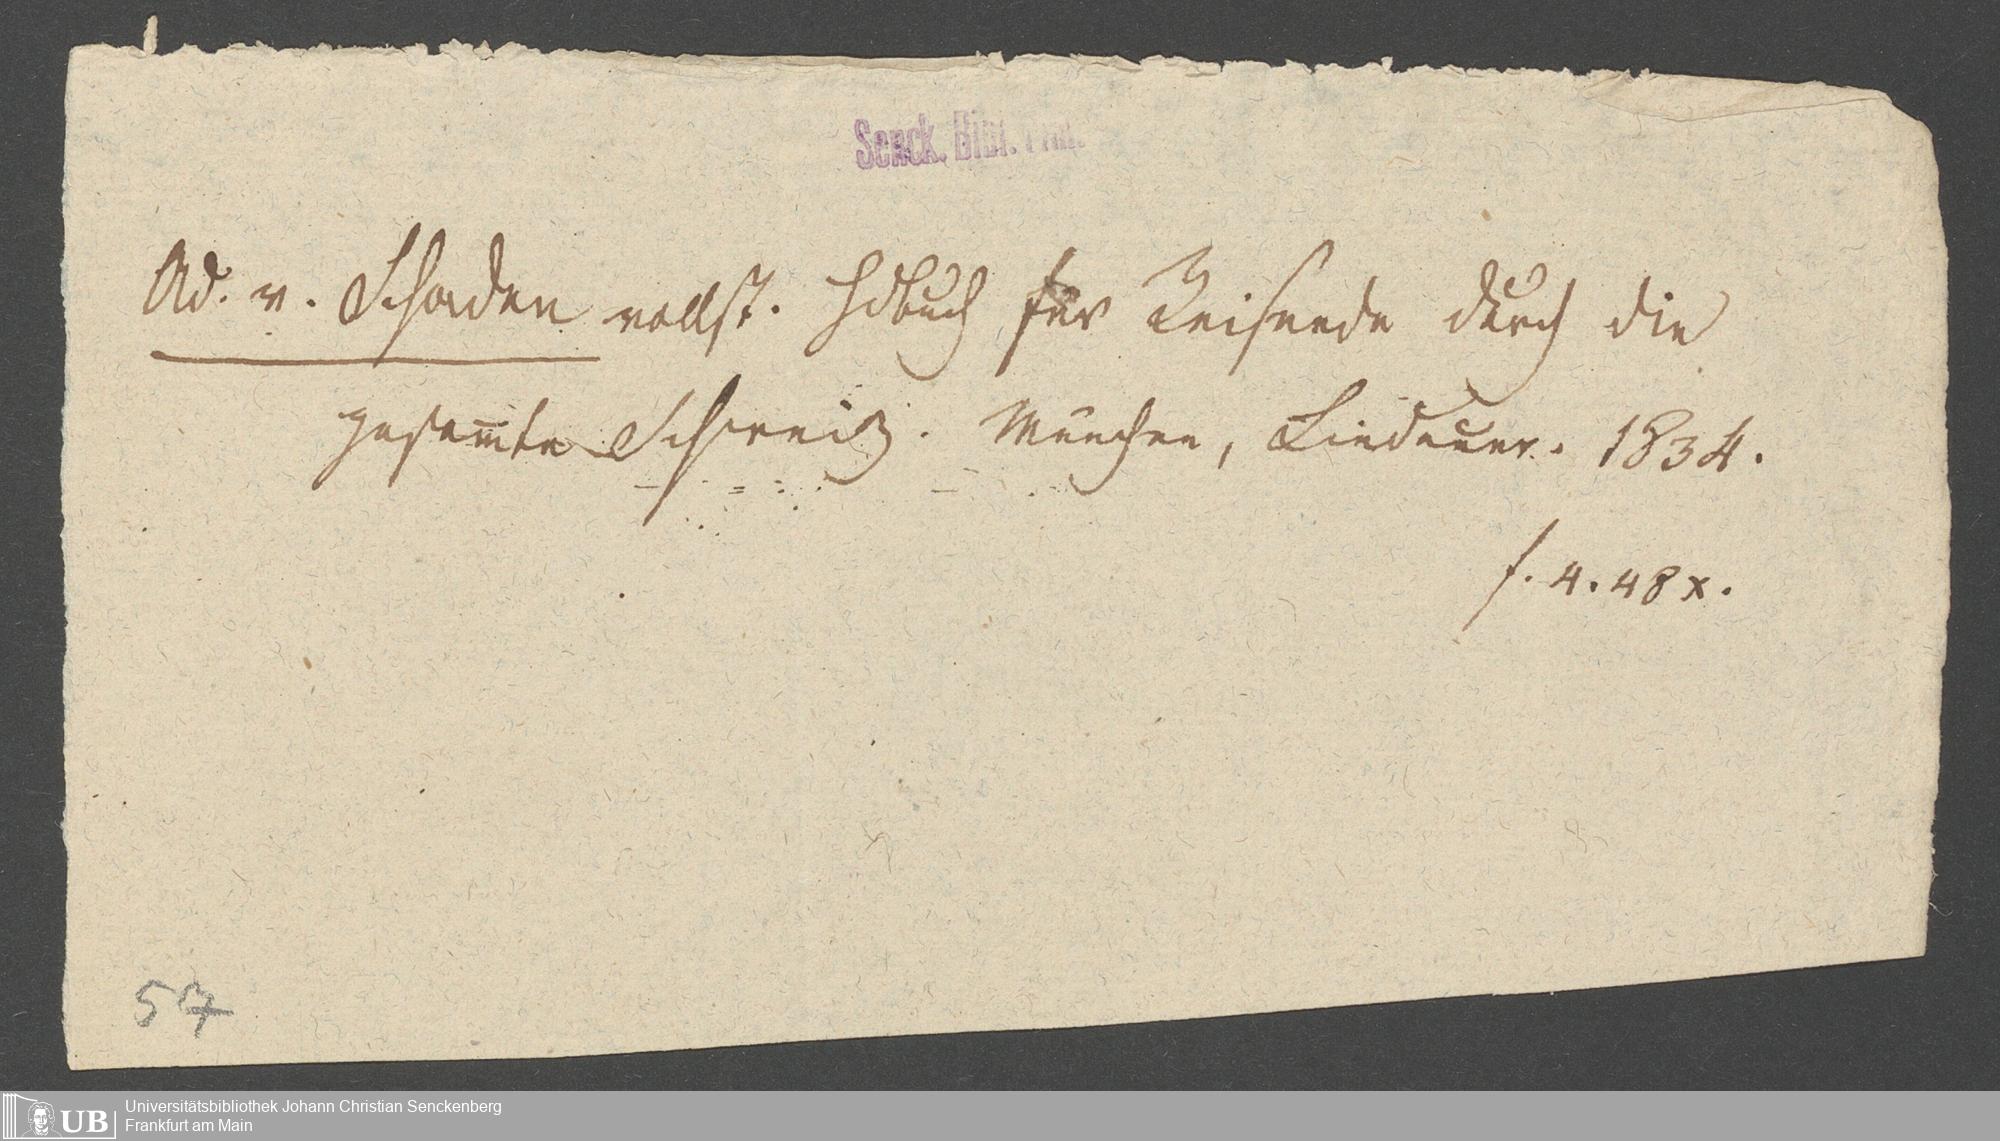 Senck. Bibl. Ffm.
Ad. v. Schaden vollst. Hdbuch für Reisende durch die
gesam̅te Schweiz. München, Lindauer. 1834.
f. 4. 48 x.
57
UB
Universitätsbibliothek Johann Christian Senckenberg
Frankfurt am Main